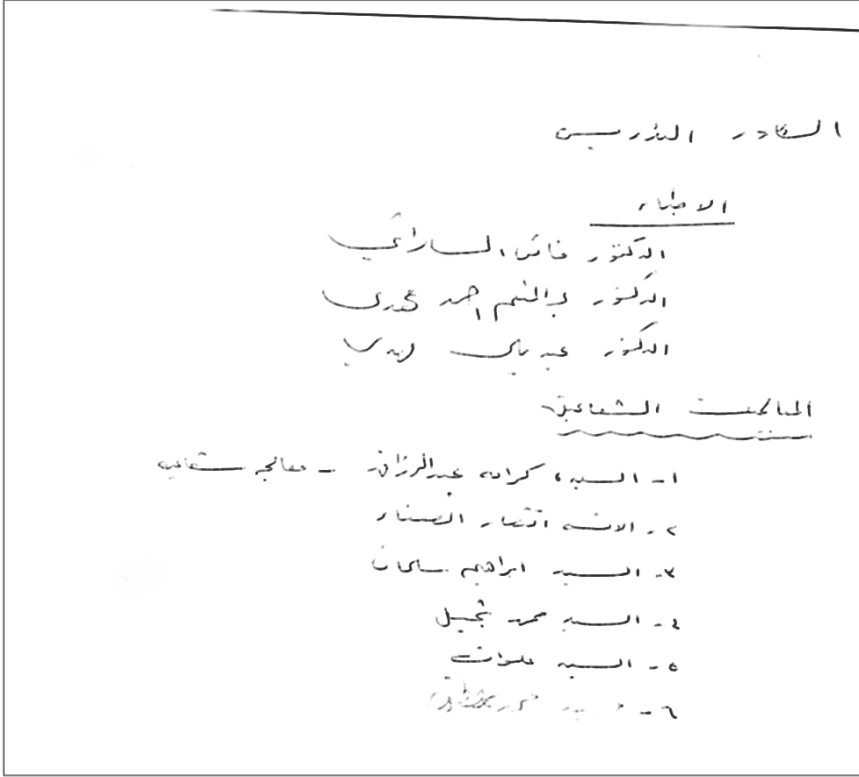 الكادر التدريسي
الاطباء
الدكتور فائق السامرائي
الدكتور عبدالمنعم احمد
الدكتور عبد
المعالجين الشعاعين
١- السيدة كرامه عبدالرزاق - معالجه شعاعيه
٢- الانسه انتصار الصفار
٣- السيد ابراهيم سلمان
٤- السيد محمد جميل
٥- السيد علوان
٦-